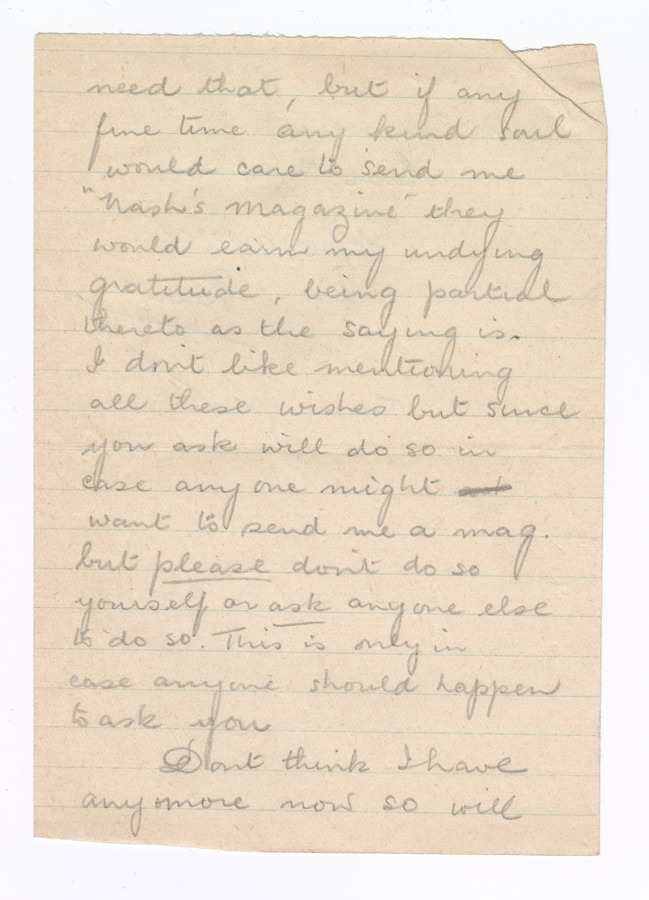 need that, but if any
fine time any kind soul
would care to send me
"Nash's Magazine" they
would earn my undying
gratitude, being partial
thereto as the saying is.
I don't like mentioning
all these wishes but since
you ask will do so in
case anyone might
want to send me a mag.
but please don't do so
yourself or ask anyone else
to do so. This is only in
case anyone should happen
to ask you
Dont think I have
anymore now so will